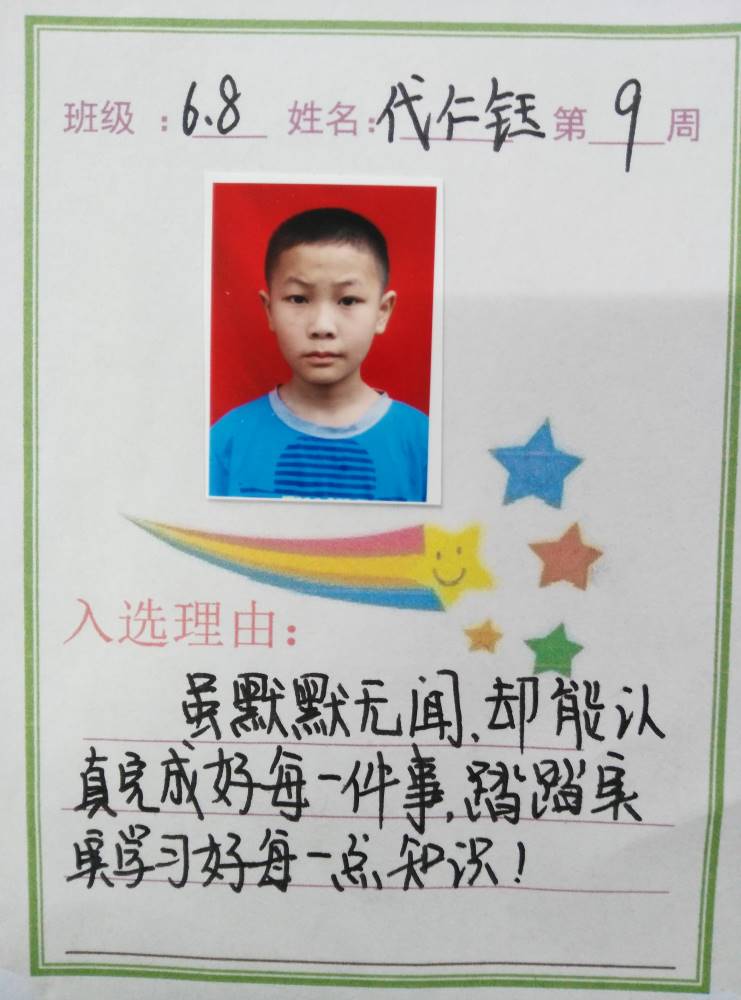 班级：6.8 姓名：代仁钰 第9周
入选理由：
虽默默无闻,却能认
真完成好每一件事,踏踏实
实学习好每一点知识!